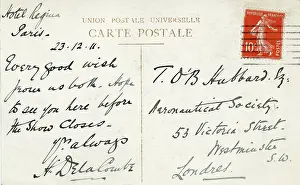 Hotel Regina
Paris.
23.12.11.
UNION POSTALE UNIVERSELLE
CARTE POSTALE
Every good wish
from us both. Hope
to see you here before
the Show closes.
Yrs always
H. Delacombe
T. O'B Hubbard. Esq:
Aeronautical Society.
53 Victoria Street.
Westminster
S.W.
Londres.
10